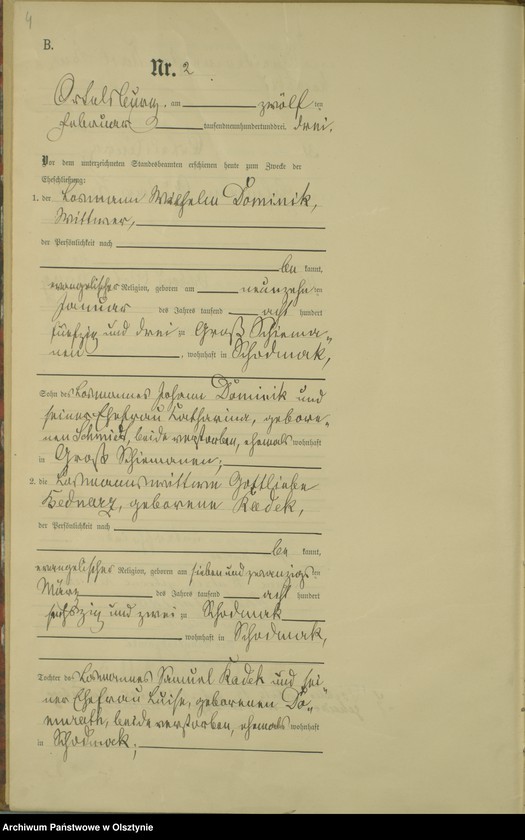 4
B.
Nr. 2
Ortelsburg, am zwölf ten
Februar tausendneunhundertunddrei.
Vor dem unterzeichneten Standesbeamten erschienen heute zum Zwecke der
Eheschließung:
1. der Losmann Wilhelm Dominik,
Wittwer,
der Persönlichkeit nach
be kannt,
evangelischer Religion, geboren am neunzehn ten
Januar des Jahres tausend acht hundert
fünfzig und drei zu Groß Schiema-
nen, wohnhaft in Schodmak,
Sohn des Losmannes Johann Dominik und
seiner Ehefrau Katharina, gebore-
nen Schmidt, beide verstorben, ehemals wohnhaft
in Groß Schiemanen;
2. die Losmannswittwe Gottliebe
Bednarz, geborene Kadek,
der Persönlichkeit nach
be kannt,
evangelischer Religion, geboren am sieben und zwanzigs ten
März des Jahres tausend acht hundert
sechszig und zwei zu Schodmak
wohnhaft in Schodmak,
Tochter des Losmannes Samuel Kadek und sei
ner Ehefrau Luise, geborenen Do-
beide verstorben, ehemals wohnhaft
in Schodmak;
Archiwum Państwowe w Olsztynie